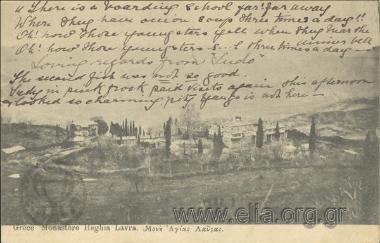 "There is a boarding school far far away
Where they have onion soup three times a day!!
Oh! how those youngsters yell when they hear the
dinner bell
Oh! how those youngsters yell three times a day
Loving regards from "Ludo"
The second fish was not so good.
Lady in pink frock paid visits again this afternoon
looked so charming pity is not here
Grèce Monastère Heghia Lavra. Μονὴ Ἁγίας Λαύρας.
www.elia.org.gr